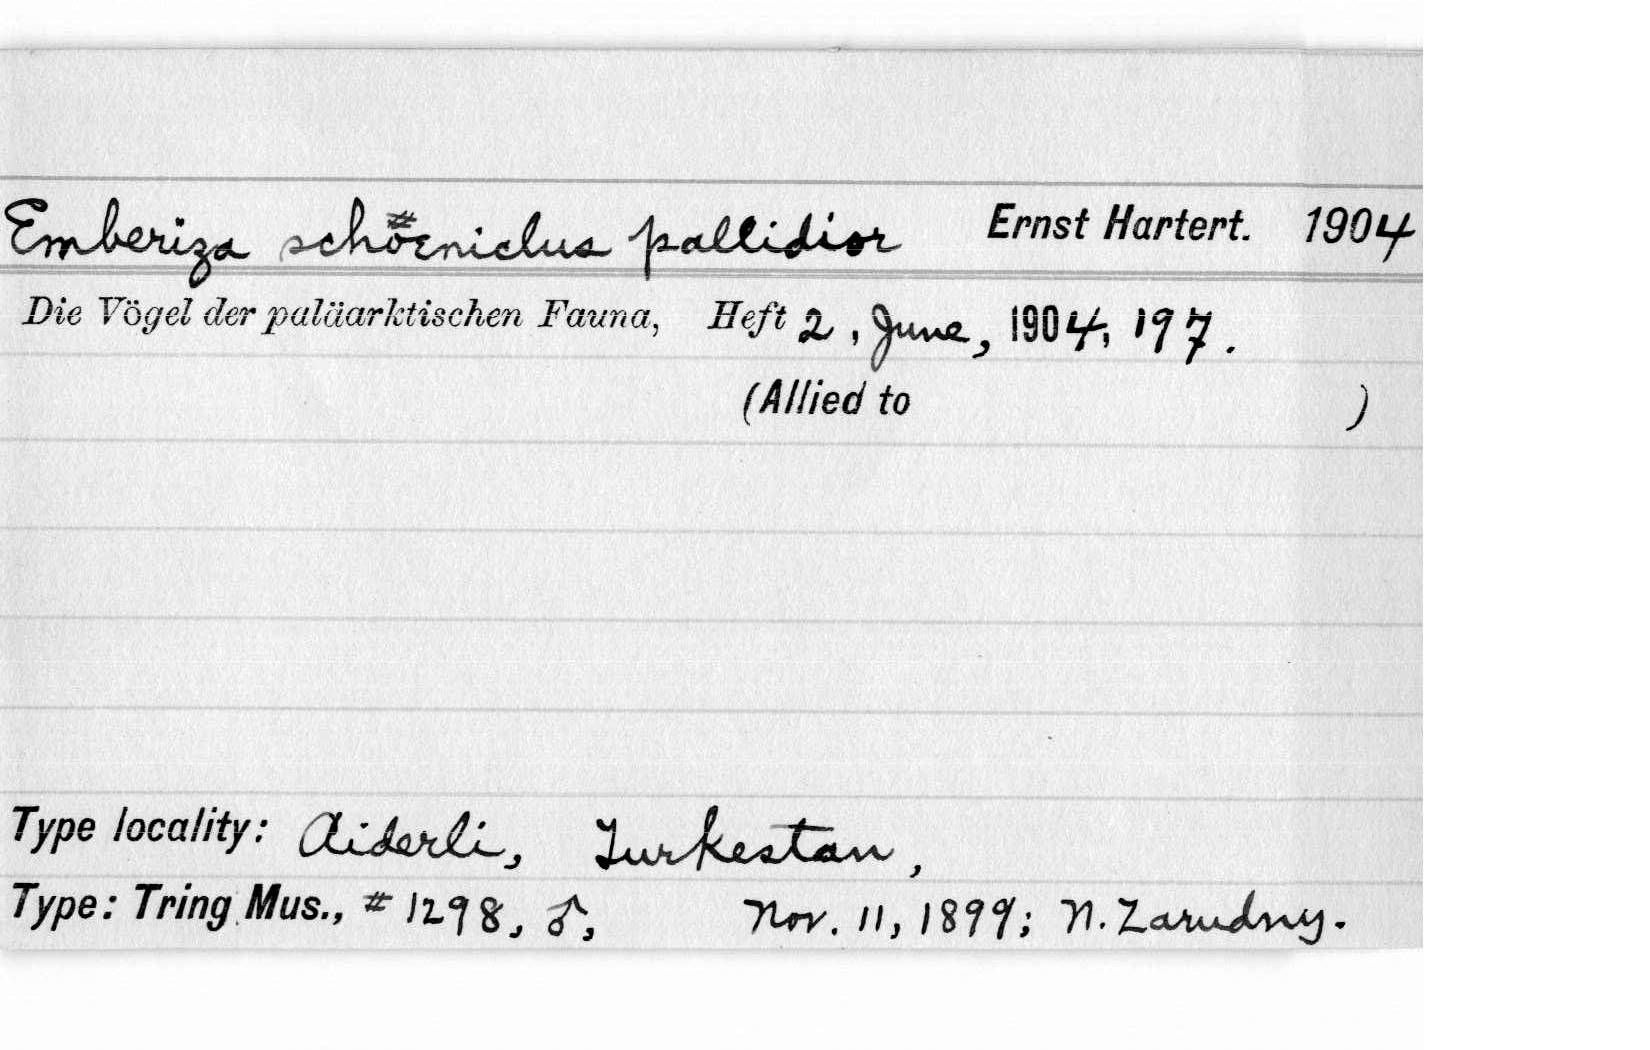 Emberiza schöeniclus pallidior Ernst Hartert. 1904
Die Vögel der paläarktischen Fauna, Heft 2, June, 1904, 197.
(Allied to )
Type locality: Aiderli, Turkestan,
Type: Tring Mus., # 1298, ♂, Nov. 11, 1899; N. Zarudny.